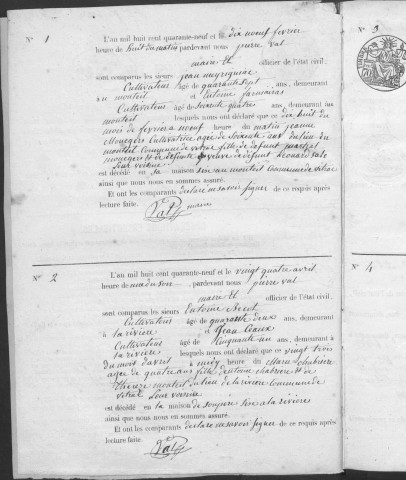 N° 1
L'an mil huit cent quarante-neuf et le dix neuf février
heure de huit du matin pardevant nous pierre val
maire et officier de l'état civil,
sont comparus les sieurs jean
Cultivateur âgé de quarante sept ans, demeurant
au monteil et Antoine
Cultivateur âgé de soixante quatre ans, demeurant au
monteil lesquels nous ont déclaré que ce dix huit du
mois de fevrier a neuf heure du matin jeanne
Cultivatrice agee de soixante ans du lieu du
monteil Commune de vitrac fille de defunt martial
et de defunte veuve a défunt Leonard
leur voisine
est décédé en sa maison sise au monteil Commune de vitrac
ainsi que nous nous en sommes assuré.
Et ont les comparants declaré ne savoir signer de ce requis après
lecture faite.
Val maire
N° 2
L'an mil huit cent quarante-neuf et le vingt quatre avril
heure de du soir, pardevant nous pierre val
maire et officier de l'état civil,
sont comparus les sieurs Antoine
Cultivateur âgé de quarante deux ans, demeurant
à la riviere et Jean
Cultivateur âgé de Cinquante un ans, demeurant à
la riviere lesquels nous ont déclaré que ce vingt trois
du mois d'avril a midy heure du Marie chabrière
agee de quatre ans fille d'antoine chabrière et de
monteil du lieu de la riviere Commune de
vitrac leur voisine
est décédé en la maison de son père sise a la riviere
ainsi que nous nous en sommes assuré.
Et ont les comparants declaré ne savoir signer de ce requis après
lecture faite.
Val
N° 3
N° 4